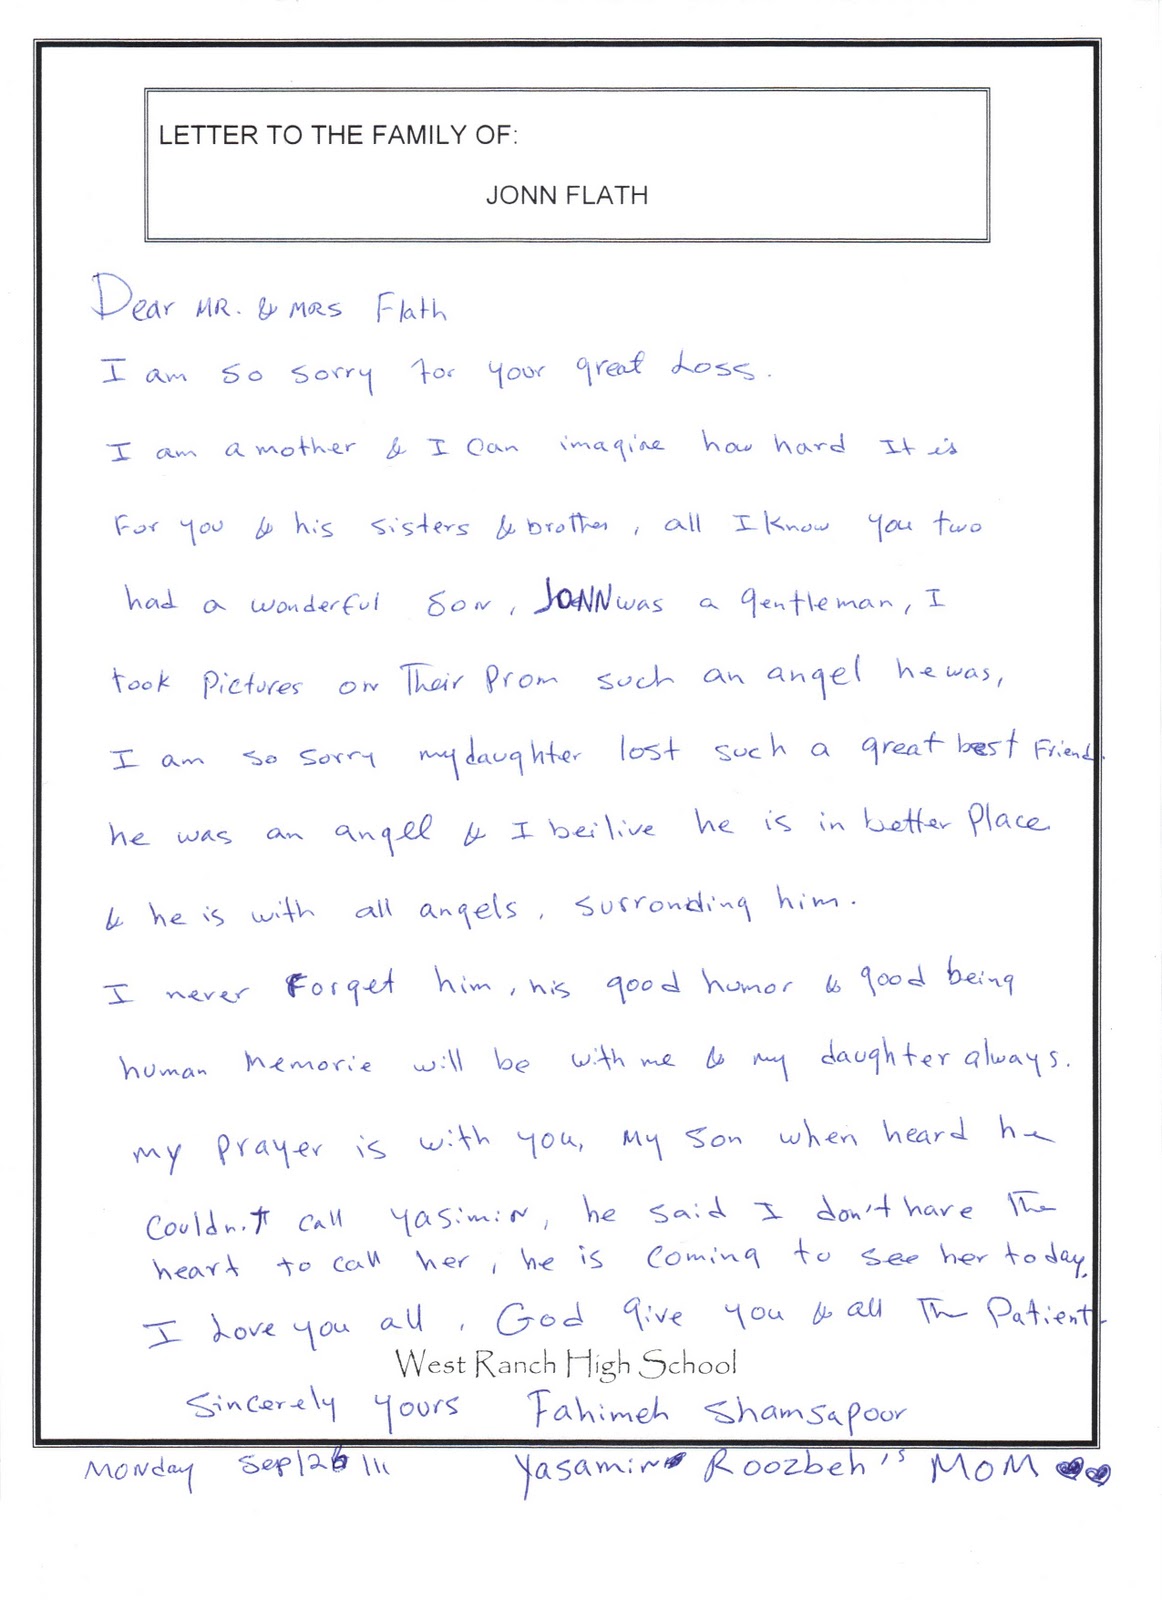 LETTER TO THE FAMILY OF:
JONN FLATH
Dear MR. & MRS Flath
I am so sorry for your great Loss.
I am a mother & I Can imagine how hard It is
For you & his sisters & brother, all I know you two
had a wonderful son, JONN was a gentleman, I
took Pictures on Their Prom such an angel he was,
I am so sorry my daughter lost such a great best Friend.
he was an angel & I beilive he is in better Place
& he is with all angels, surronding him.
I never Forget him, his good humor & good being
human Memorie will be with me & my daughter always.
my Prayer is with you, My son when heard he
Couldn't call Yasimin, he said I don't have The
heart to call her, he is Coming to see her today,
I Love you all, God give you & all The Patient
West Ranch High School
Sincerely yours Fahimeh Shamsapour
MONday Sep/26/11 Yasamin Roozbeh's MOM